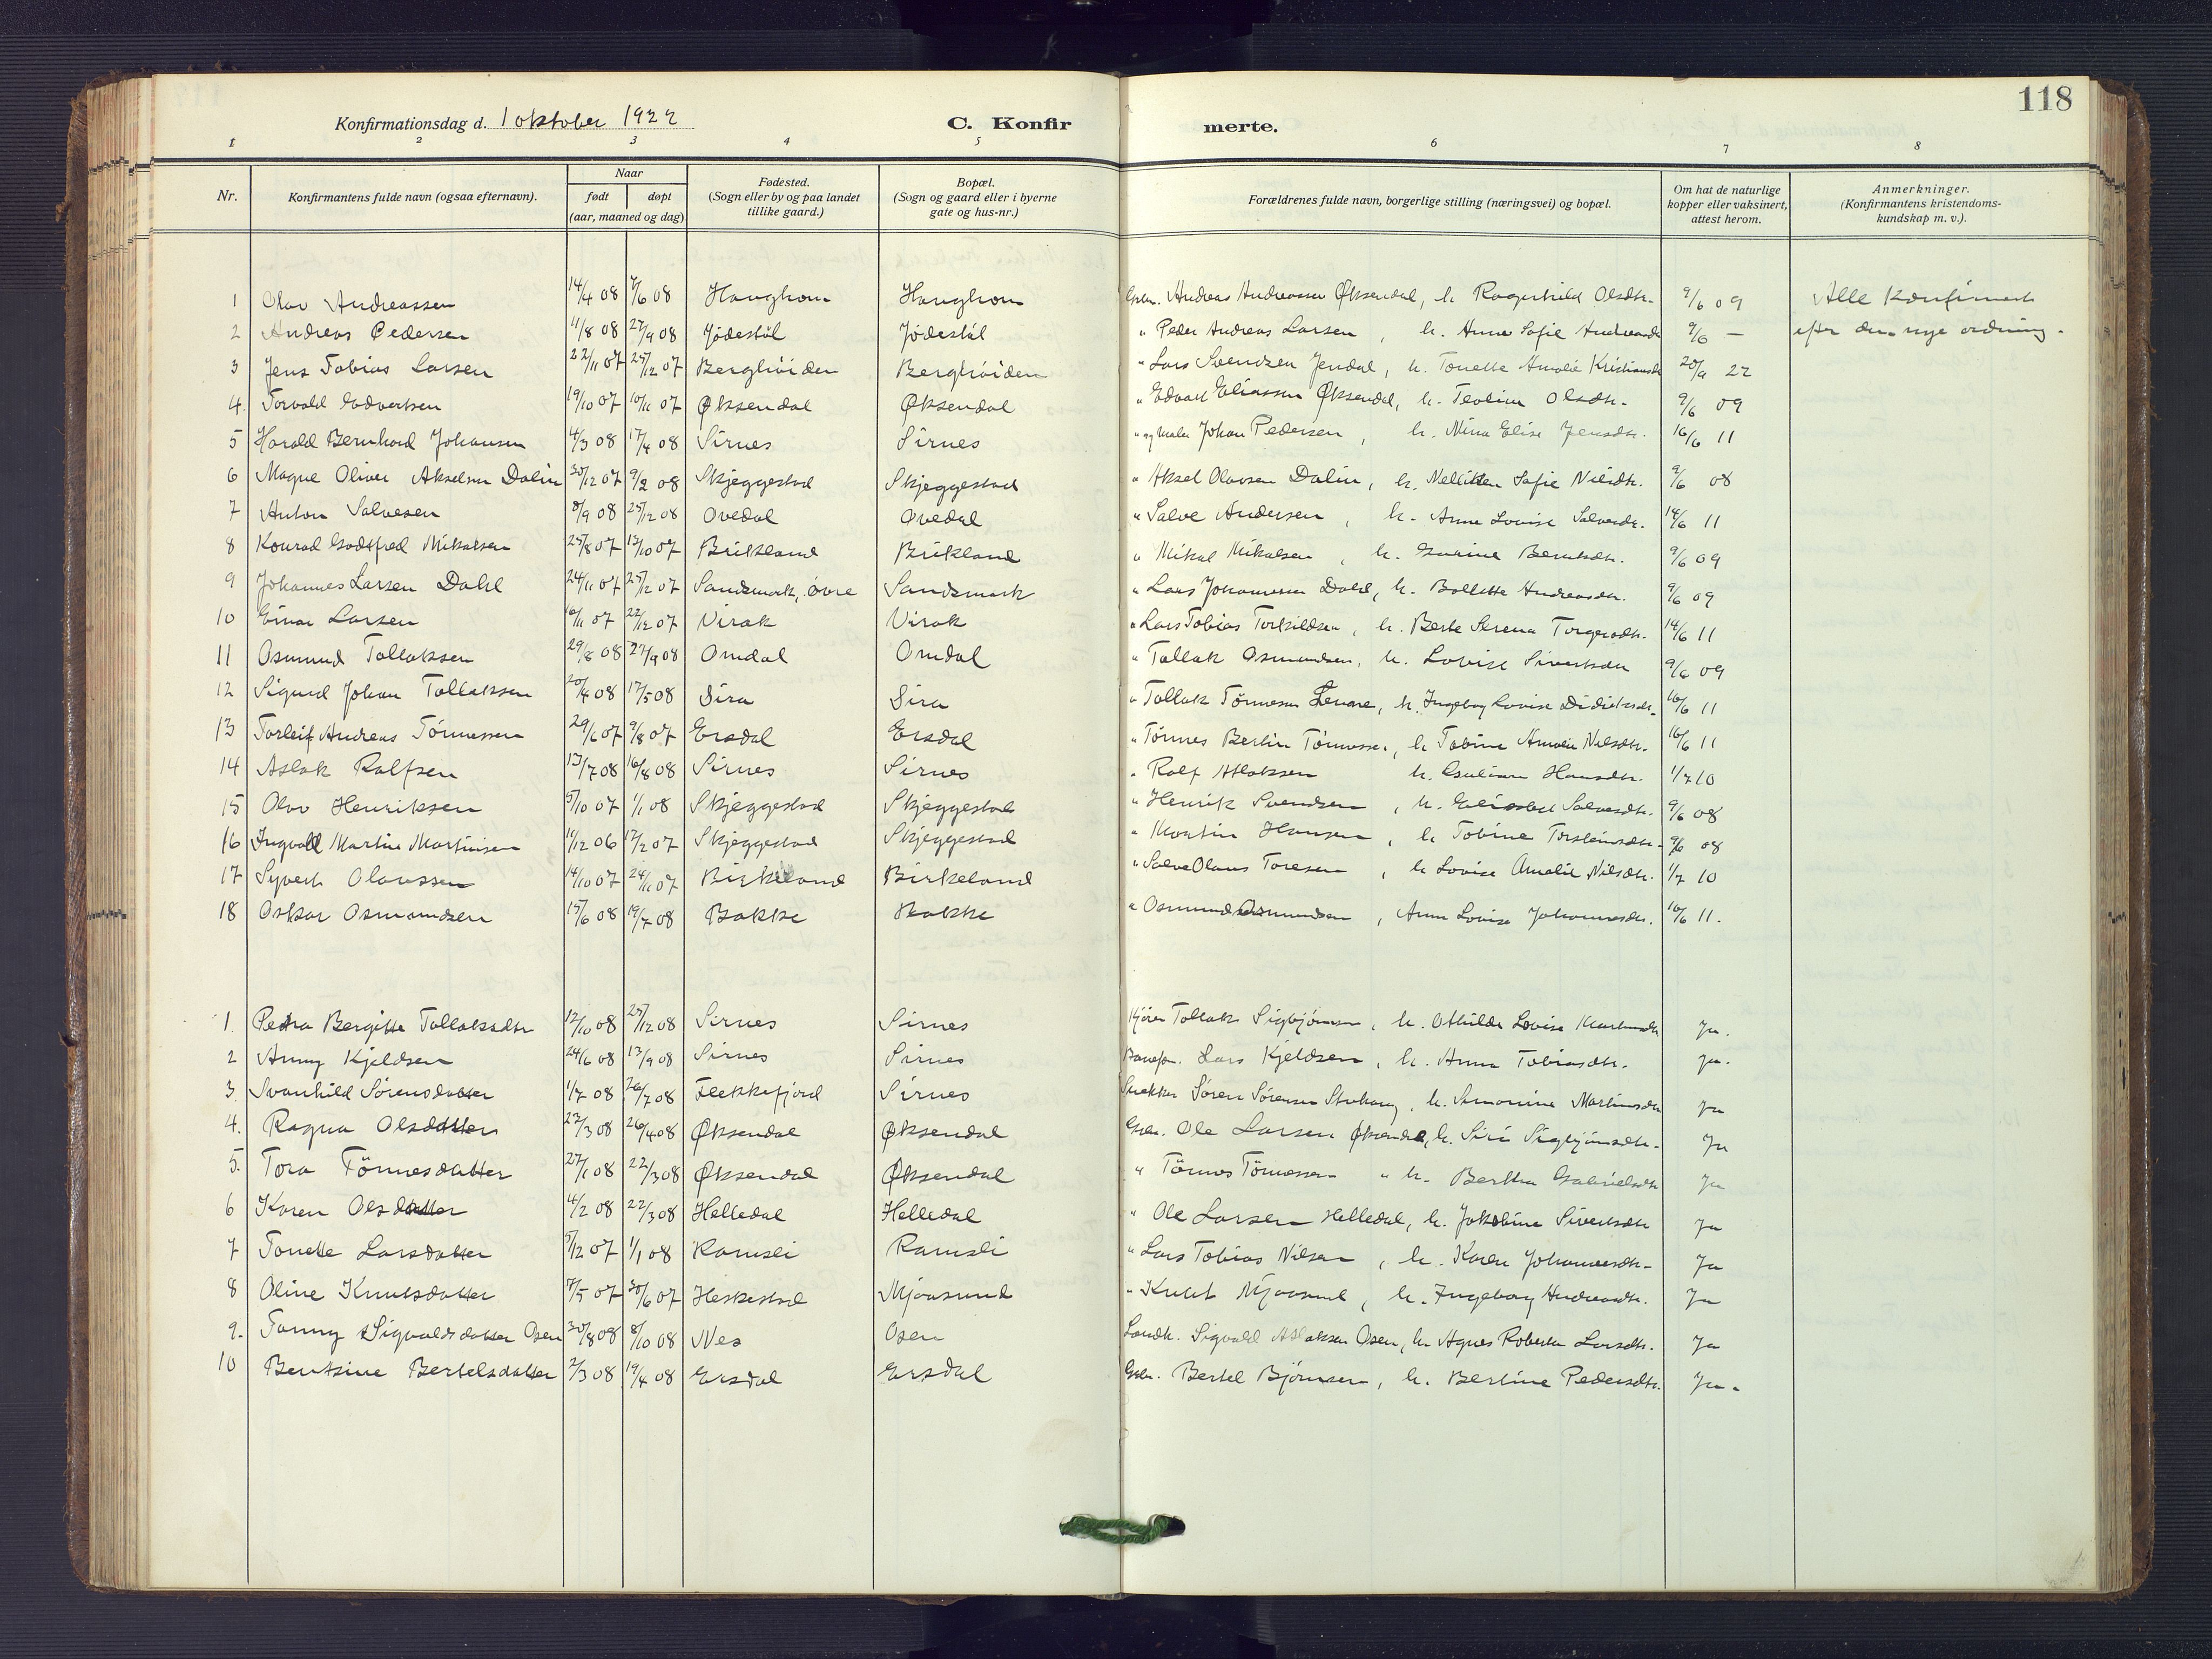 118
Konfirmationsdag d. 1 oktober 1922
C. Konfir merte.
1 2 3 4 5 6 7 8
Nr. Konfirmantens fulde navn (ogsaa efternavn). Naar født døpt (aar, maaned og dag) Fødested. (Sogn eller by og paa landet tillike gaard.) Bopæl. (Sogn og gaard eller i byerne gate og hus-nr.) Forældrenes fulde navn, borgerlige stilling (næringsvei) og bopæl. Om hat de naturlige kopper eller vaksinert, attest herom. Anmerkninger. (Konfirmantens kristendomskundskap m. v.).
1 Olav Andreassen 14/4 08 7/6 08 Haughom Haughom Gbr. Andreas Andreassen Øksendal, h. Ragnhild Olsdtr. 9/6 09 Alle konfirmert
2 Andreas Pedersen 11/8 08 27/9 08 Jødestöl Jødestöl " Peder Andreas Larsen, h. Anne Sofie Andreasdtr 9/6 — efter den nye ordning.
3 Jens Tobias Larsen 22/11 07 25/12 07 Berghöiden Berghöiden " Lars Svendsen Jendal, h. Tonette Amalie Kristiansdtr 20/9 22
4. Torvald Edvartsen 19/10 07 10/11 07 Øksendal Øksendal " Edvart Eliassen Øksendal, h. Teoline Olsdtr. 9/6 09
5 Harald Bernhard Johansen 4/3 08 17/4 08 Sirnes Sirnes " og maler Johan Pedersen, h. Nina Elise Jensdtr. 16/6 11
6 Magne Oliver Akselsen Dalin 30/12 07 9/2 08 Skjeggestad Skjeggestad " Aksel Olavsen Dalin, h. Nellikken Sofie Nilsdtr. 9/6 08
7 Anton Salvesen 8/9 08 25/12 08 Ovedal Ovedal " Salve Andersen, h. Anne Lovise Salvesdtr. 14/6 11
8 Konrad Godtfred Mikalsen 25/8 07 13/10 07 Brikland Brikland " Mikal Mikalsen, h. Gurine Berntsdtr. 9/6 09
9 Johannes Larsen Dahl 24/11 07 25/12 07 Sandsmark, övre Sandsmark " Lars Johannesen Dahl, h. Bollette Andreasdtr. 9/6 09
10 Einar Larsen 10/11 07 22/12 07 Virak Virak " Lars Tobias Torkildsen, h. Berte Serena Torgersdtr. 14/6 11
11 Osmund Tollaksen 29/8 08 27/9 08 Omdal Omdal " Tollak Osmundsen, h. Lovise Sivertsdtr 9/6 09
12 Sigurd Johan Tollaksen 20/4 08 17/5 08 Sira Sira " Tollak Tönnesen, h. Ingeborg Lovise Didriksdtr. 16/6 11
13 Torleif Andreas Tönnessen 29/6 07 9/8 07 Ersdal Ersdal " Tönnes Bertin Tönnessen, h Tobine Amalie Nilsdtr. 16/6 11
14 Aslak Ralfsen 13/7 08 16/8 08 Sirnes Sirnes " Ralf Atlaksen h. Hansdtr. 1/7 10
15 Olav Henriksen 5/10 07 1/1 08 Skjeggestad Skjeggestad " Henrik Svendsen, h. Elisabet Salvesdtr. 9/6 08
16 Ingvald Martin Martinsen 11/12 06 17/2 07 Skjeggestad Skjeggestad " Martin Hansen, h Tobine Torsteinsdtr. 9/6 08
17 Syvert Olavssen 14/10 07 24/11 07 Birkeland Birkeland " Salve Olaus Toresen, h Lovise Amalie Nilsdtr. 1/7 10
18 Oskar Osmundsen 15/6 08 19/7 08 Bakke Bakke " Osmund Osmundsen, Anne Lovise Johannesdtr. 16/6 11.
1. Petra Bergitte Tollaksdtr 12/10 08 25/12 08 Sirnes Sirnes Kjörer Tollak Sigbjörnsen, h. Othilde Lovise Ja.
2 Anny Kjeldsen 24/6 08 13/9 08 Sirnes Sirnes Banefor. Lars Kjeldsen, h. Anna Tobiasdtr. Ja.
3. Svanhild Sørensdatter 1/7 08 26/7 08 Flekkefjord Sirnes Snekker Søren Sørensen, h. Simonine Martinsdtr Ja
4. Ragna Olsdatter 22/3 08 26/4 08 Øksendal Øksendal Gbr. Ole Larsen Øksendal, h. Siri Sigbjörnsdtr. Ja
5. Tora Tönnesdatter 27/1 08 22/3 08 Øksendal Øksendal " Tönnes Tönnessen " h. Bertha Gabrielsdtr Ja
6 Karen Olsdatter 4/2 08 22/3 08 Helledal Helledal " Ole Larsen Helledal, h. Jakobine Sivertsdtr Ja
7 Tonette Larsdatter 5/12 07 1/1 08 Ramsli Ramsli " Lars Tobias Nilsen, h. Karen Johannesdtr. Ja
8 Oline Knutsdatter 7/5 07 30/6 07 Heskestad Mjåsund " Knut Mjaasund, h. Ingeborg Andreasdtr. Ja
9. Fanny Sigvaldsdatter Osen 30/8 08 8/10 08 Nes Osen Landh. Sigvald Atlaksen Osen, h Agnes Roberta Larsdtr. Ja
10 Bentsine Bertelsdatter 2/3 08 19/4 08 Ersdal Ersdal Gbr. Bertel Björnsen, h. Bertine Pedersdtr. Ja.